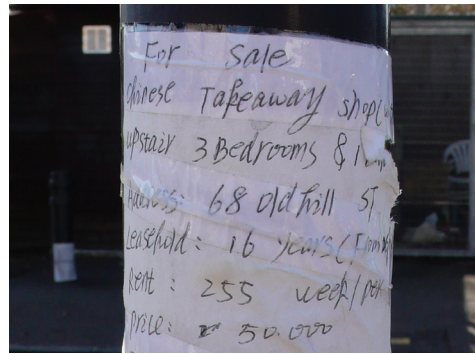 For Sale
chinese Takeaway shop
upstair 3 Bedrooms &
Address: 68 old hill ST
Leasehold: 16 years (From
Rent: 255 week/per
price: 50.000